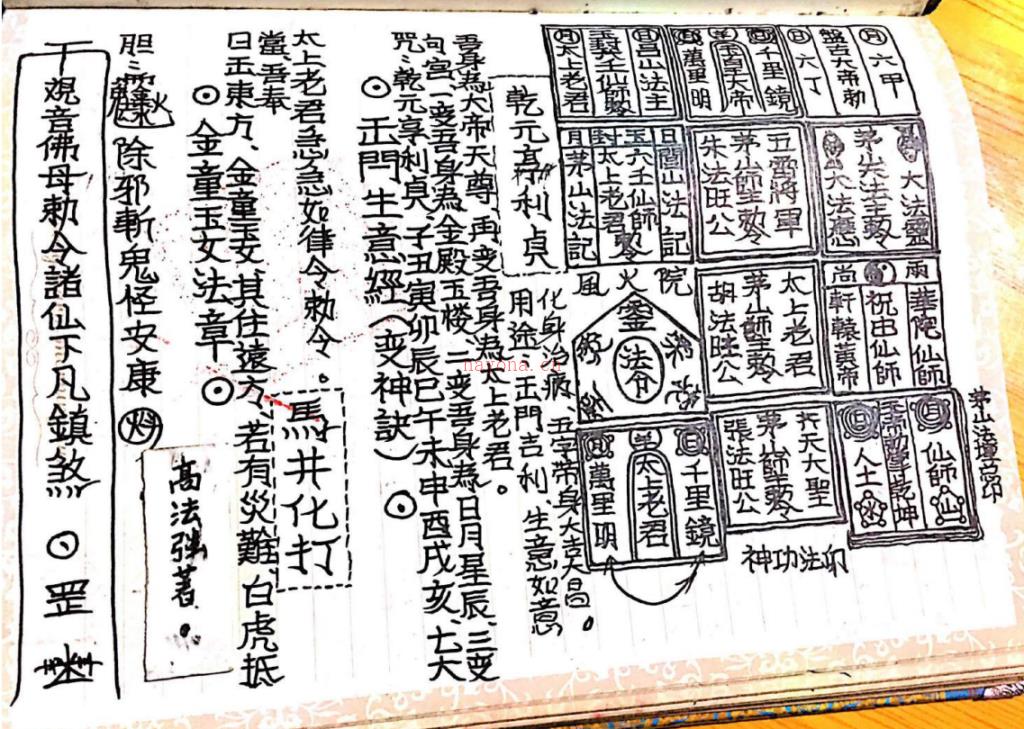 月 六甲
盤古大帝勅
日 六丁
千里鏡
玉皇大帝
萬里明
日 昌山法主
玄女六壬仙師勅
月 太上老君
大法靈
茅山法主勅
大法應
五雷將軍
茅山師主勅
朱法旺公
日閭山法記
玉六壬仙師
封太上老君勅
月茅山法記
雨 華陀仙師
祝由仙師
尚 軒轅黃帝
太上老君
茅山師主勅
胡法旺公
風火院
法令
月 仙師 山
乾坤
人土
齐天大聖
茅山師主勅
張法旺公
日 千里鏡
太上老君
月 萬里明
茅山法壇宫印
神功法印
乾元亨利貞
化身治病、五字帶身大吉大昌。
用途:正門吉利、生意如意
吾身為大帝天尊、再变吾身為太上老君。
句宫、一变吾身為金殿玉楼、二变吾身為日月星辰、三变
咒:乾元享利貞、子丑寅卯辰巳午未申酉戌亥、七大
⊙正門生意經(变神訣)⊙
太上老君急急如律令勅令。
馬井化打
當、吾奉
日正東方、金童玉女其住遠方、若有災難、白虎抵
⊙金童玉女法章⊙
高法强著。
胆: 除邪斬鬼怪安康
觀音佛母勅令諸仙下凡鎮煞 ⊙ 罡
nayona.cn